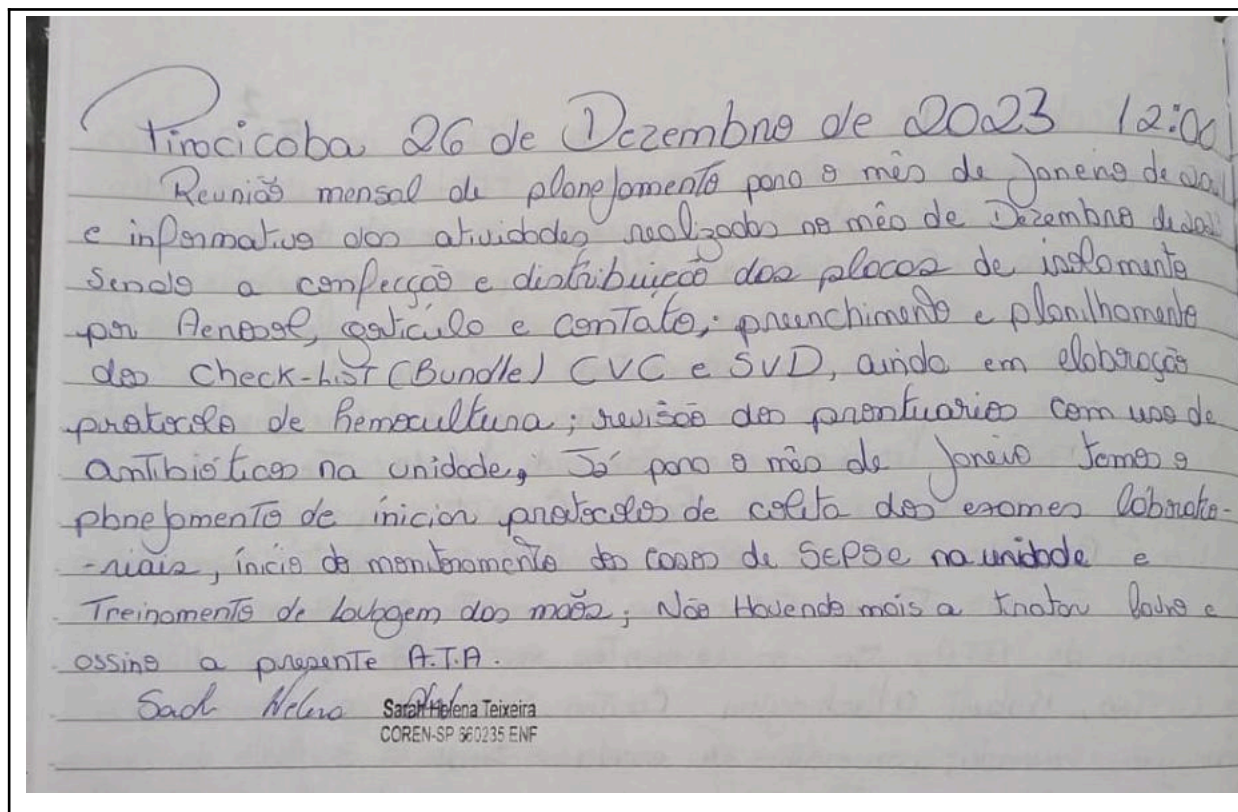 Piracicaba 26 de Dezembro de 2023 12:00
Reunião mensal de planejamento para o mês de Janeiro de
e informativo das atividades realizadas no mês de Dezembro de
Sendo a confecção e distribuição das placas de isolamento
por Aerosol, gotículo e contato; preenchimento e planilhamento
dos Check-List (Bundle) CVC e SVD, ainda em elaboração
protocolo de hemocultura; revisão dos prontuarios com uso de
antibióticos na unidade, Já para o mês de Janeiro temos o
planejamento de iniciar protocolos de coleta dos exames laborato-
-riais, início do monitoramento dos casos de SEPSE na unidade e
Treinamento de lavagem das mãos; Não Havendo mais a tratar lavro e
assino a presente A.T.A.
Sarah Helena Teixeira
COREN-SP 660235 ENF